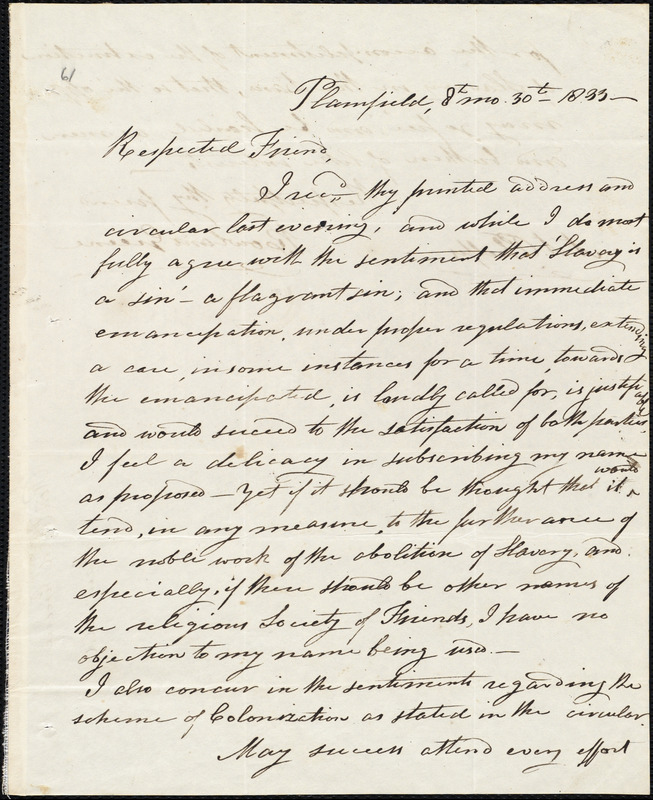 61
Plainfield, 8th mo. 30th 1833—
Respected Friend,
I recd thy printed address and
circular last evening, and while I do most
fully agree with the sentiment that 'Slavery is
a sin' – a flagrant sin; and that immediate
emancipation, under proper regulations, extending
a care, in some instances for a time, towards
the emancipated, is loudly called for, is justifiable
and would succeed to the satisfaction of both parties,
I feel a delicacy in subscribing my name
as proposed – Yet if it should be thought that it would
tend, in any measure, to the furtherance of
the noble work of the abolition of Slavery, and
especially, if there should be other names of
the religious Society of Friends, I have no
objection to my name being used.—
I also concur in the sentiments regarding the
scheme of Colonization as stated in the circular.
May success attend every effort